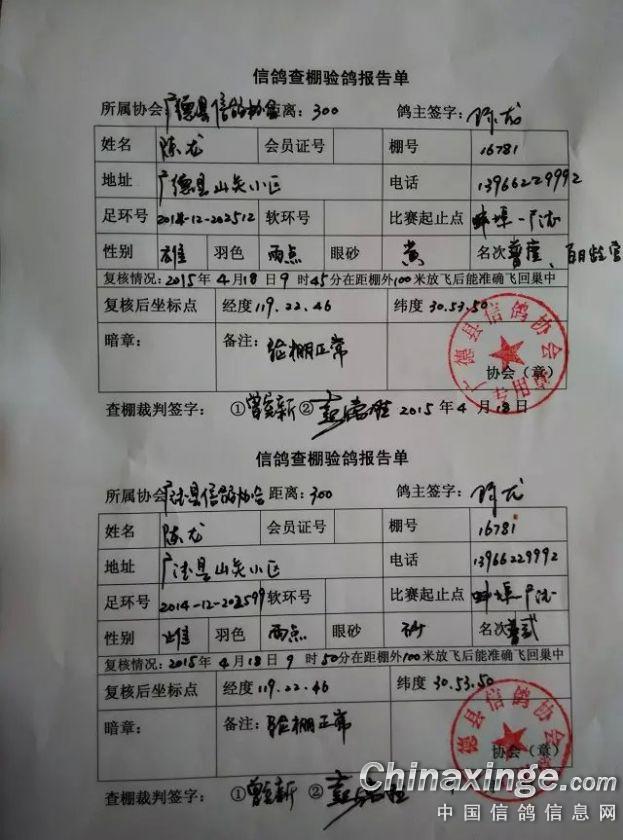 信鸽查棚验鸽报告单
所属协会:广德县信鸽协会 距离:300 鸽主签字:陈龙
姓名 陈龙 会员证号 棚号 16781
地址 广德县山关小区 电话 13966229992
足环号 2014-12-202512 软环号 比赛起止点 蚌埠—广德
性别 雄 羽色 雨点 眼砂 黄 名次
复核情况:2015年4月18日9时45分在距棚外100米放飞后能准确飞回巢中
复核后坐标点 经度119.22.46 纬度30.53.50
暗章: 备注:验棚正常
广德县信鸽协会
协会（章）
查棚裁判签字: ① ② 2015年4月18日
信鸽查棚验鸽报告单
所属协会:广德县信鸽协会 距离:300 鸽主签字:陈龙
姓名 陈龙 会员证号 棚号 16781
地址 广德县山关小区 电话 13966229992
足环号 2014-12-202599 软环号 比赛起止点 蚌埠—广德
性别 雄 羽色 雨点 眼砂 砂 名次
复核情况:2015年4月18日9时50分在距棚外100米放飞后能准确飞回巢中
复核后坐标点 经度119.22.46 纬度30.53.50
暗章: 备注:验棚正常
德县信鸽协会
协会（章）
查棚裁判签字: ① ②
Chinaxinge.com
中国信鸽信息网